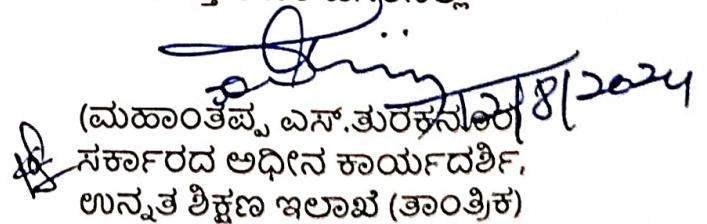 12/8/2024
(ಮಹಾಂತಪ್ಪ ಎಸ್.ತುರಕನೂರ)
ಸರ್ಕಾರದ ಅಧೀನ ಕಾರ್ಯದರ್ಶಿ,
ಉನ್ನತ ಶಿಕ್ಷಣ ಇಲಾಖೆ (ತಾಂತ್ರಿಕ)